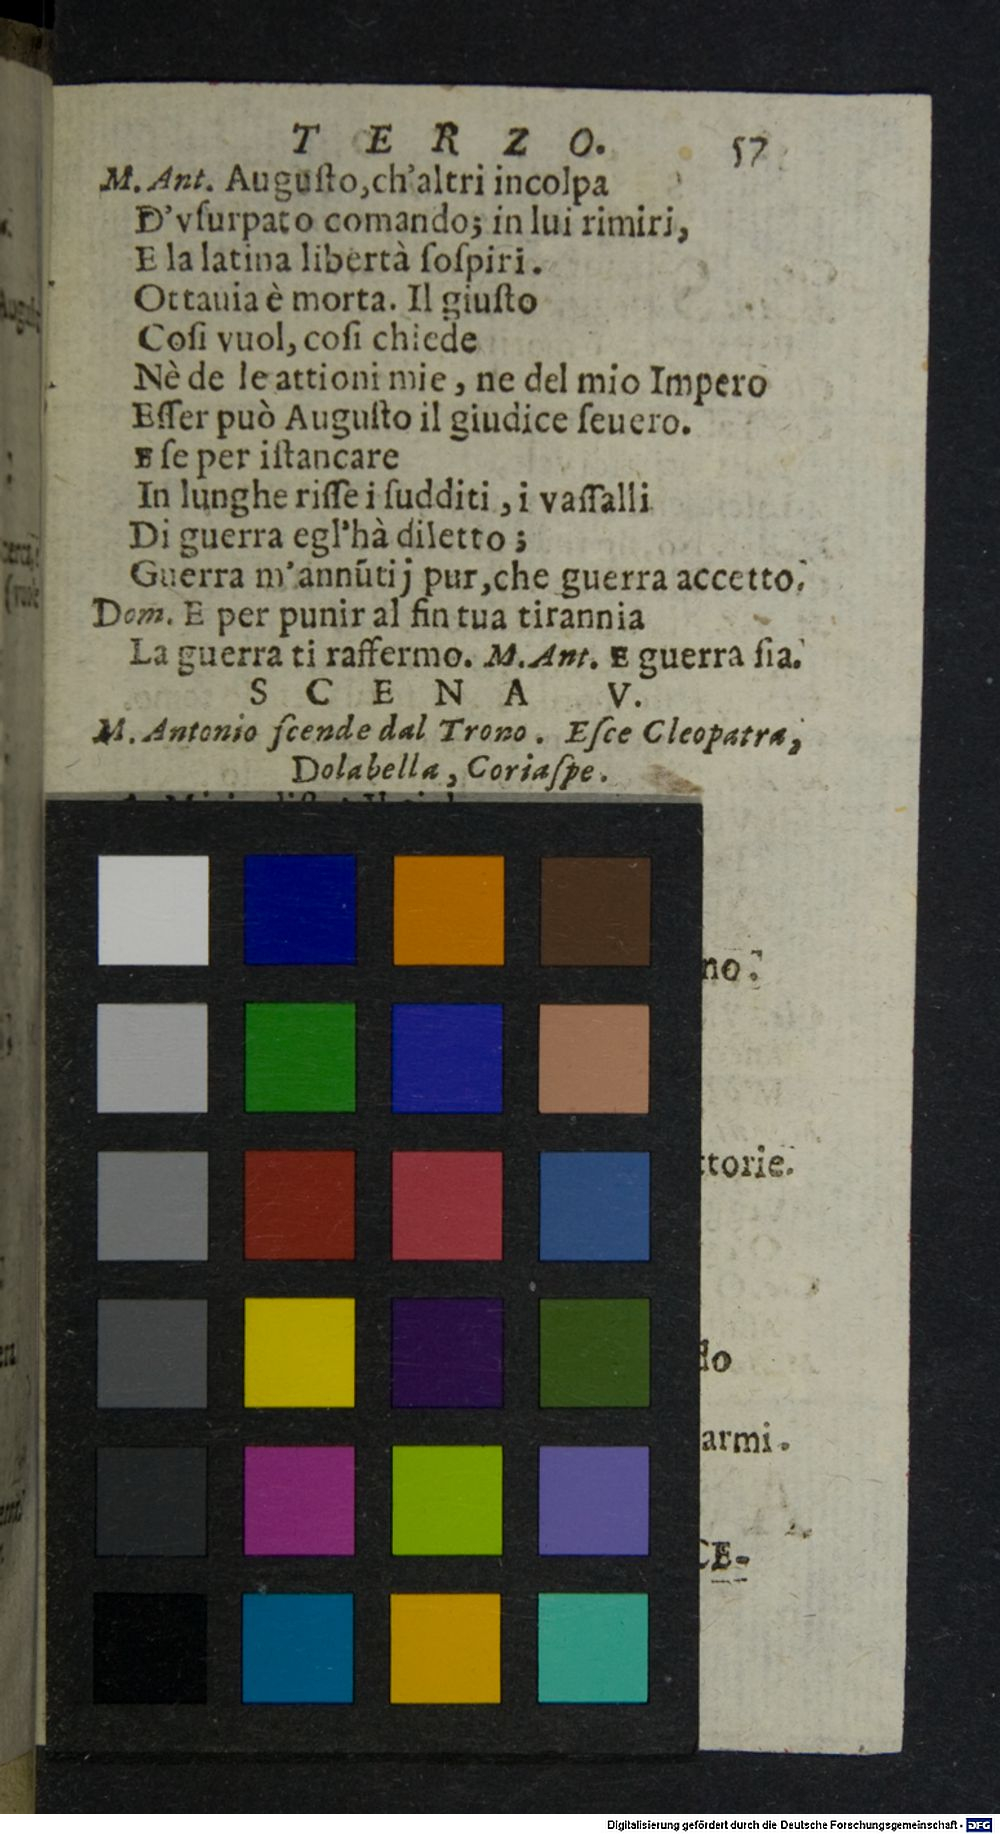 TERZO. 57
M. Ant. Auguſto,ch'altri incolpa
D'vſurpato comando; in lui rimiri,
E la latina libertà ſoſpiri.
Ottauia è morta. Il giuſto
Coſi vuol, coſi chiede
Nè de le attioni mie, ne del mio Impero
Eſſer può Auguſto il giudice ſeuero.
E ſe per iſtancare
In lunghe riſſe i ſudditi, i vaſſalli
Di guerra egl'hà diletto;
Guerra m'annūtij pur,che guerra accetto.
Dom. E per punir al fin tua tirannia
La guerra ti raffermo. M. Ant. E guerra ſia.
SCENA V.
M. Antonio ſcende dal Trono. Eſce Cleopatra,
Dolabella, Coriaſpe.
no.
ttorie.
do
armi.
CE-
Digitalisierung gefördert durch die Deutsche Forschungsgemeinschaft - DFG